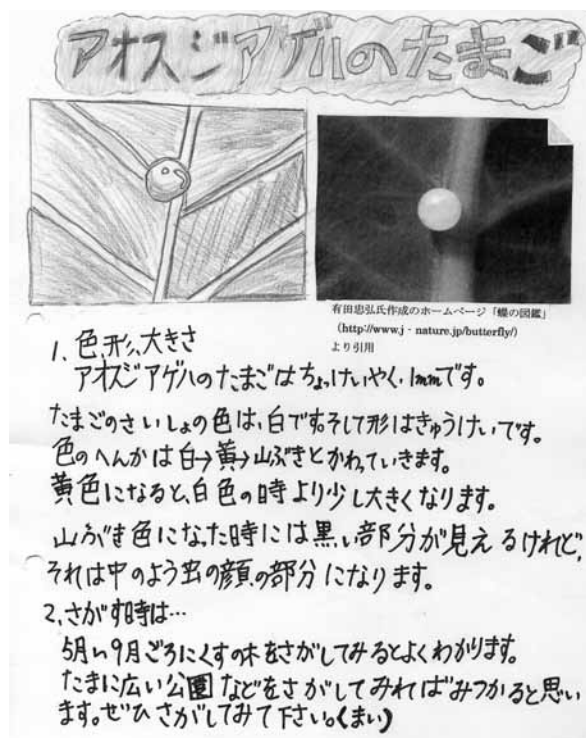 アオスジアゲハのたまご
有田忠弘氏作成のホームページ「蝶の図鑑」
(http://www.j‐nature.jp/butterfly/)
より引用
1、色、形、大きさ
アオスジアゲハのたまごはちょっけいやく1mmです。
たまごのさいしょの色は、白です。そして形はきゅうけいです。
色のへんかは白→黄→山ぶきとかわっていきます。
黄色になると、白色の時より少し大きくなります。
山ぶき色になった時には黒い部分が見えるけれど、
それは中のよう虫の顔の部分になります。
2、さがす時は…
5月〜9月ごろにくすの木をさがしてみるとよくわかります。
たまに広い公園などをさがしてみればみつかると思い
ます。ぜひさがしてみて下さい。(まい)